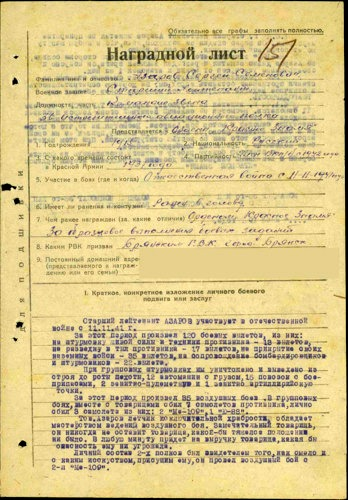 Обязательно все графы заполнять полностью.
Наградной лист
157
Фамилия, имя и отчество Азаров Сергей Семенович
Военное звание Старший Лейтенант
Должность, часть Командир звена
истребительного авиационного полка
Представляется к Ордену "Красное Знамя"
1. Год рождения 2. Национальность Русский
3. С какого времени состоит в Красной Армии 4. Партийность
5. Участие в боях (где и когда) Отечественная война с 11-11-1941
6. Имеет ли ранения и контузии Ранен в голову
7. Чем ранее награжден (за какие отличия) Орденом "Красное Знамя"
За образцовое выполнение боевых заданий
8. Каким РВК призван Брянским РВК город Брянск
9. Постоянный домашний адрес
(представляемого к награждению или его семьи)
ДЛЯ ПОДШИВКИ
I. Краткое, конкретное изложение личного боевого
подвига или заслуг
Старший лейтенант АЗАРОВ участвует в отечественной
войне с 11.11.41 г.
За этот период произвел 120 боевых вылетов, из них:
на штурмовку живой силы и техники противника - 13 вылетов,
на разведку в тыл противника - 17 вылетов, на прикрытие своих
наземных войск - 35 вылетов, на сопровождение бомбардировщиков
и штурмовиков - 22 вылета.
При штурмовке группами им уничтожено и выведено из
строя до роты пехоты, 12 автомашин с грузом, 15 повозок с бое-
припасами, 2 зенитно-пулеметных и 1 зенитную артиллерийскую
точки.
За этот период произвел 35 воздушных боев. В групповых
боях, вместе с товарищами сбил 9 самолетов противника, лично
сбил 3 самолета из них: 2 "Ме-109", 1 "Ю-88".
Тов. Азаров летчик исключительной храбрости, обладает
мастерством ведения воздушного боя. Замечательный товарищ,
он никогда не оставит товарища, какое-бы тяжелое положение
ни было. В любую минуту придет на выручку товарища, какая бы
опасность ему не угрожала.
Личный состав 2-х полков был свидетелем того, как смело и
с каким искусством, присущим ему, он провел воздушный бой с
2-я "Ме-109".